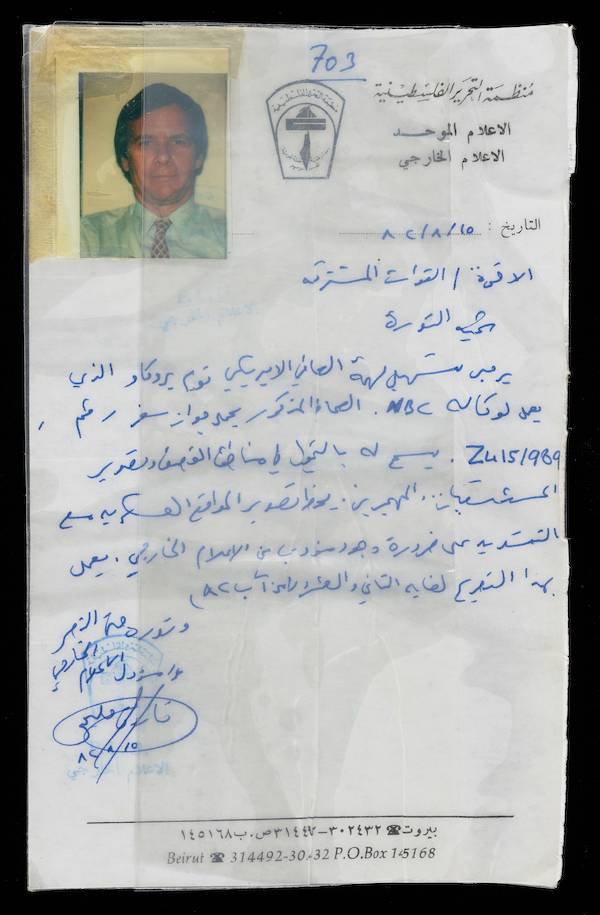 703
منظمة التحرير الفلسطينية
الاعلام الموحد
الاعلام الخارجي
التاريخ : ٨٢/٨/١٥
الاخوة / القوات المشتركة
تحية الثورة
يرجى تسهيل مهمة الصحافي الاميركي توم بروكاو الذي
يعمل لوكالة NBC . الصحافي المذكور يحمل جواز سفر رقم
Z4151989 . يسمح له بالتجول في مناطق القصف وتصوير
المستشفيات والمهجرين . يحظر تصوير المواقع العسكرية مع
التشديد على ضرورة وجود مندوب من الاعلام الخارجي . يعمل
بهذا التصريح لغاية الثاني والعشرون من آب ٨٢
وثورة حتى النصر
مسؤول الاعلام الخارجي
٨٢/٨/١٥
الاعلام الخارجي
بيروت ☎ ٣٠٢٤٣٢–٣١٤٤٩٢ ص.ب ١٤٥١٦٨
Beirut ☎ 314492-30.-32 P.O.Box 145168